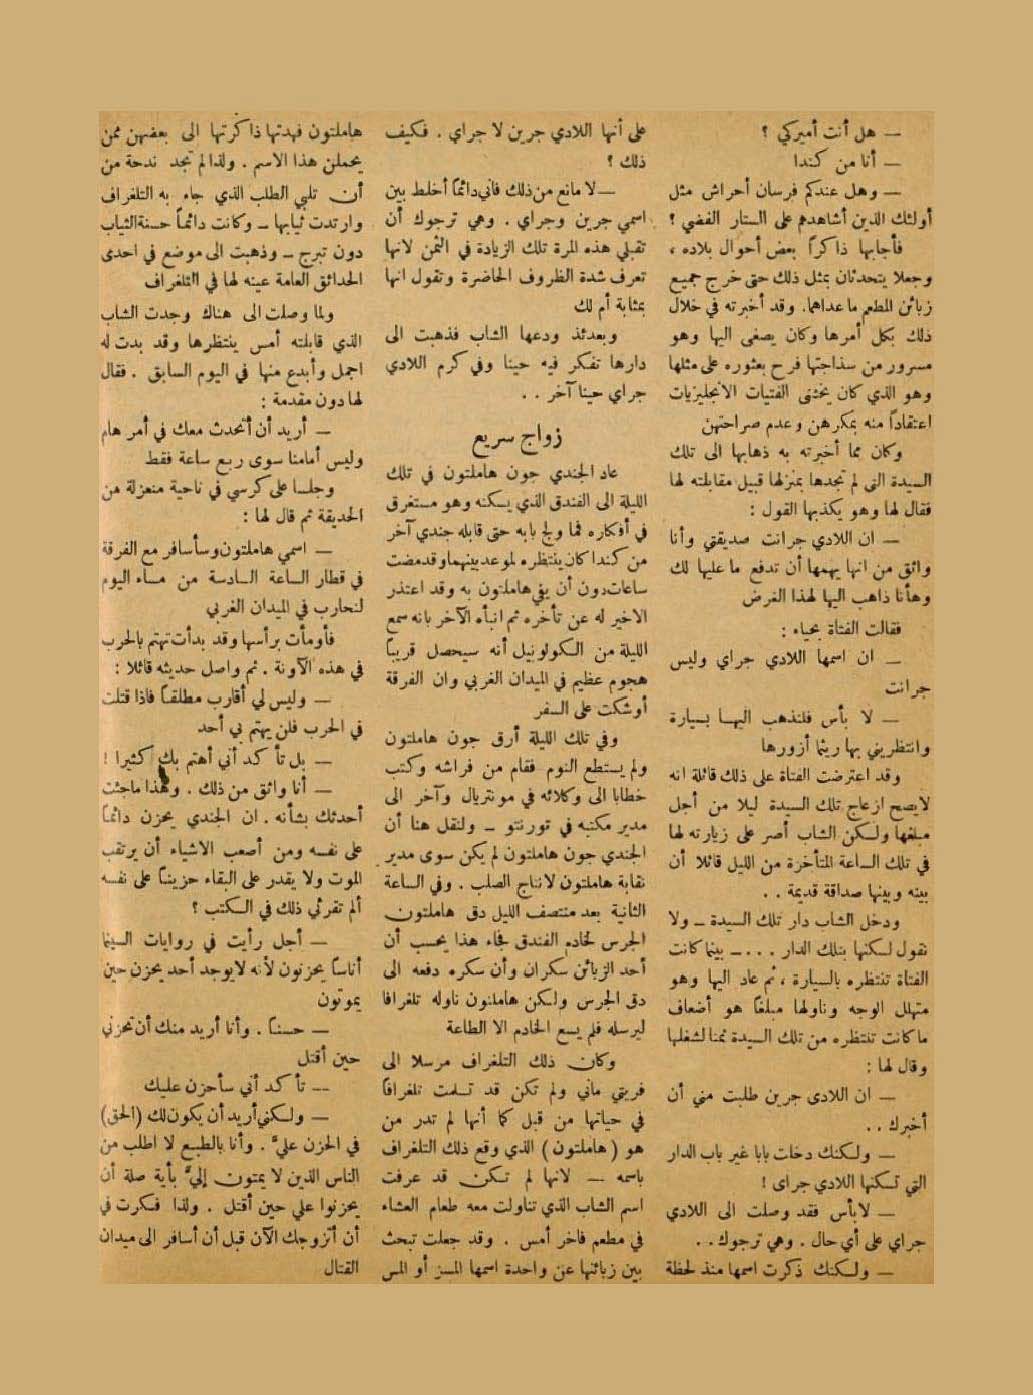 — هل أنت أميركي ؟
— أنا من كندا
— وهل عندكم فرسان أحراش مثل
أولئك الذين أشاهدهم على الستار الفضي ؟
فأجابها ذاكراً بعض أحوال بلاده ،
وجعلا يتحدثان بمثل ذلك حتى خرج جميع
زبائن المطعم ماعداهما. وقد أخبرته في خلال
ذلك بكل أمرها وكان يصغى اليها وهو
مسرور من سذاجتها فرح بعثوره على مثلها
وهو الذي كان يخشى الفتيات الانجليزيات
اعتقاداً منه بمكرهن وعدم صراحتهن
وكان مما أخبرته به ذهابها الى تلك
السيدة التى لم تجدها بمنزلها قبيل مقابلته لها
فقال لها وهو يكذبها القول :
— ان اللادي جرانت صديقتي وأنا
واثق من انها يهمها أن تدفع ما عليها لك
وهأنا ذاهب اليها لهذا الغرض
فقالت الفتاة بحياء :
— ان اسمها اللادي جراي وليس
جرانت
— لا بأس فلنذهب اليها بسيارة
وانتظريني بها ريثما أزورها
وقد اعترضت الفتاة على ذلك قائلة انه
لايصح ازعاج تلك السيدة ليلا من أجل
مبلغها ولكن الشاب أصر على زيارته لها
في تلك الساعة المتأخرة من الليل قائلا أن
بينه وبينها صداقة قديمة . .
ودخل الشاب دار تلك السيدة — ولا
نقول لسكنها بتلك الدار . . . — بينما كانت
الفتاة تنتظره بالسيارة ، ثم عاد اليها وهو
متهلل الوجه وناولها مبلغاً هو أضعاف
ما كانت تنتظره من تلك السيدة ثمنا لشغلها
وقال لها :
— ان اللادي جرين طلبت مني أن
أخبرك . .
— ولكنك دخلت بابا غير باب الدار
التي تسكنها اللادي جراى !
— لابأس فقد وصلت الى اللادي
جراي على أي حال . وهي ترجوك . .
— ولكنك ذكرت اسمها منذ لحظة
على أنها اللادي جرين لا جراي . فكيف
ذلك ؟
— لا مانع من ذلك فاني دائماً أخلط بين
اسمي جرين وجراي . وهي ترجوك أن
تقبلي هذه المرة تلك الزيادة في الثمن لانها
تعرف شدة الظروف الحاضرة وتقول انها
بمثابة أم لك
وبعدئذ ودعها الشاب فذهبت الى
دارها تفكر فيه حينا وفي كرم اللادي
جراي حيناً آخر . .
زواج سريع
عاد الجندي جون هاملتون في تلك
الليلة الى الفندق الذي يسكنه وهو مستغرق
في أفكاره فما ولج بابه حتى قابله جندي آخر
من كندا كان ينتظره لموعد بينهما وقد مضت
ساعات دون أن يفي هاملتون به وقد اعتذر
الاخير له عن تأخره ثم انبأه الآخر بانه سمع
الليلة من الكولونيل أنه سيحصل قريباً
هجوم عظيم في الميدان الغربي وان الفرقة
أوشكت على السفر
وفي تلك الليلة أرق جون هاملتون
ولم يستطع النوم فقام من فراشه وكتب
خطابا الى وكلائه في مونتريال وآخر الى
مدير مكتبه في تورنتو — ولنقل هنا أن
الجندي جون هاملتون لم يكن سوى مدير
نقابة هاملتون لانتاج الصلب . وفي الساعة
الثانية بعد منتصف الليل دق هاملتون
الجرس لخادم الفندق فجاء هذا يحسب أن
أحد الزبائن سكران وأن سكره دفعه الى
دق الجرس ولكن هاملتون ناوله تلغرافا
ليرسله فلم يسع الخادم الا الطاعة
وكان ذلك التلغراف مرسلا الى
فريتي ماني ولم تكن قد تسلمت تلغرافاً
في حياتها من قبل كما أنها لم تدر من
هو (هاملتون) الذي وقع ذلك التلغراف
باسمه — لانها لم تكن قد عرفت
اسم الشاب الذي تناولت معه طعام العشاء
في مطعم فاخر أمس . وقد جعلت تبحث
بين زبائنها عن واحدة اسمها المسز أو المس
هاملتون فهدتها ذاكرتها الى بعضهن ممن
يحملن هذا الاسم . ولذا لم تجد ندحة من
أن تلبي الطلب الذي جاء به التلغراف
وارتدت ثيابها — وكانت دائماً حسنة الثياب
دون تبرج — وذهبت الى موضع في احدى
الحدائق العامة عينه لها في التلغراف
ولما وصلت الى هناك وجدت الشاب
الذي قابلته أمس ينتظرها وقد بدت له
اجمل وأبدع منها في اليوم السابق . فقال
لها دون مقدمة :
— أريد أن أتحدث معك في أمر هام
وليس أمامنا سوى ربع ساعة فقط
وجلسا على كرسي في ناحية منعزلة من
الحديقة ثم قال لها :
— اسمي هاملتون وسأسافر مع الفرقة
في قطار الساعة السادسة من مساء اليوم
لنحارب في الميدان الغربي
فأومأت برأسها وقد بدأت تهتم بالحرب
في هذه الآونة . ثم واصل حديثه قائلا :
— وليس لي أقارب مطلقاً فاذا قتلت
في الحرب فلن يهتم بي أحد
— بل تأكد أني أهتم بك كثيرا !
— أنا واثق من ذلك . وهذا ماجئت
أحدثك بشأنه . ان الجندي يحزن دائماً
على نفسه ومن أصعب الاشياء أن يرتقب
الموت ولا يقدر على البقاء حزيناً على نفسه
ألم تقرئي ذلك في الكتب ؟
— أجل رأيت في روايات السينما
أناساً يحزنون لأنه لايوجد أحد يحزن حين
يموتون
— حسناً . وأنا أريد منك أن تحزني
حين أقتل
— تأكد أني سأحزن عليك
— ولكني أريد أن يكون لك (الحق)
في الحزن عليَّ . وأنا بالطبع لا اطلب من
الناس الذين لا يمتون إليَّ بأية صلة أن
يحزنوا علي حين أقتل . ولذا فكرت في
أن أتزوجك الآن قبل أن أسافر الى ميدان
القتال